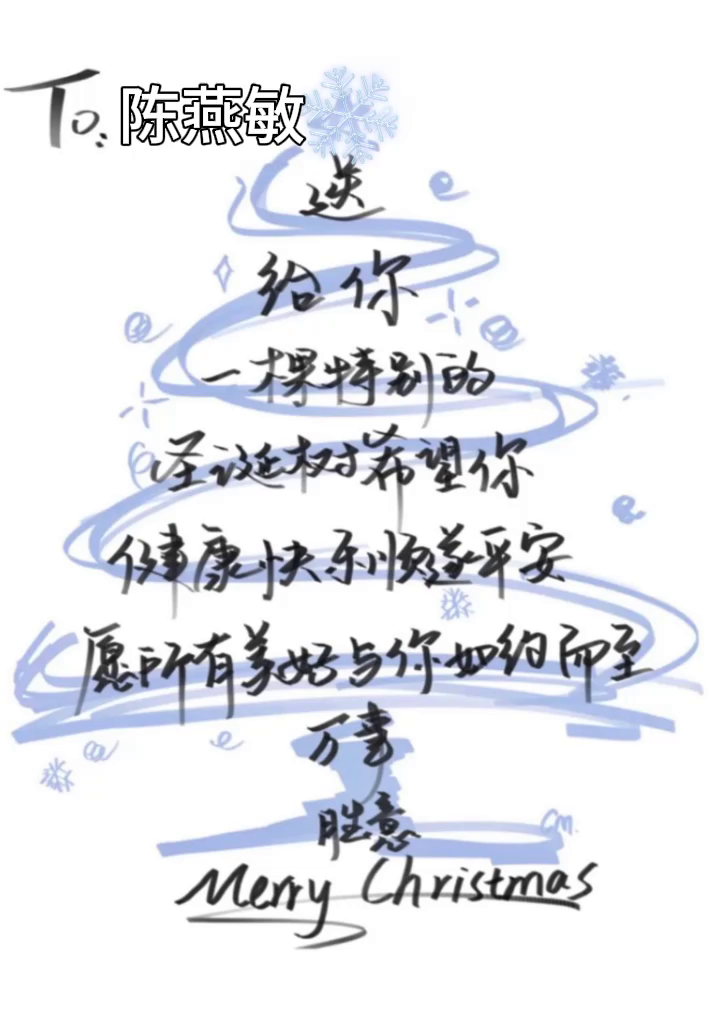 To: 陈燕敏
送
给你
一棵特别的
圣诞树希望你
健康快乐顺遂平安
愿所有美好与你如约而至
万事
胜意
cm.
Merry Christmas